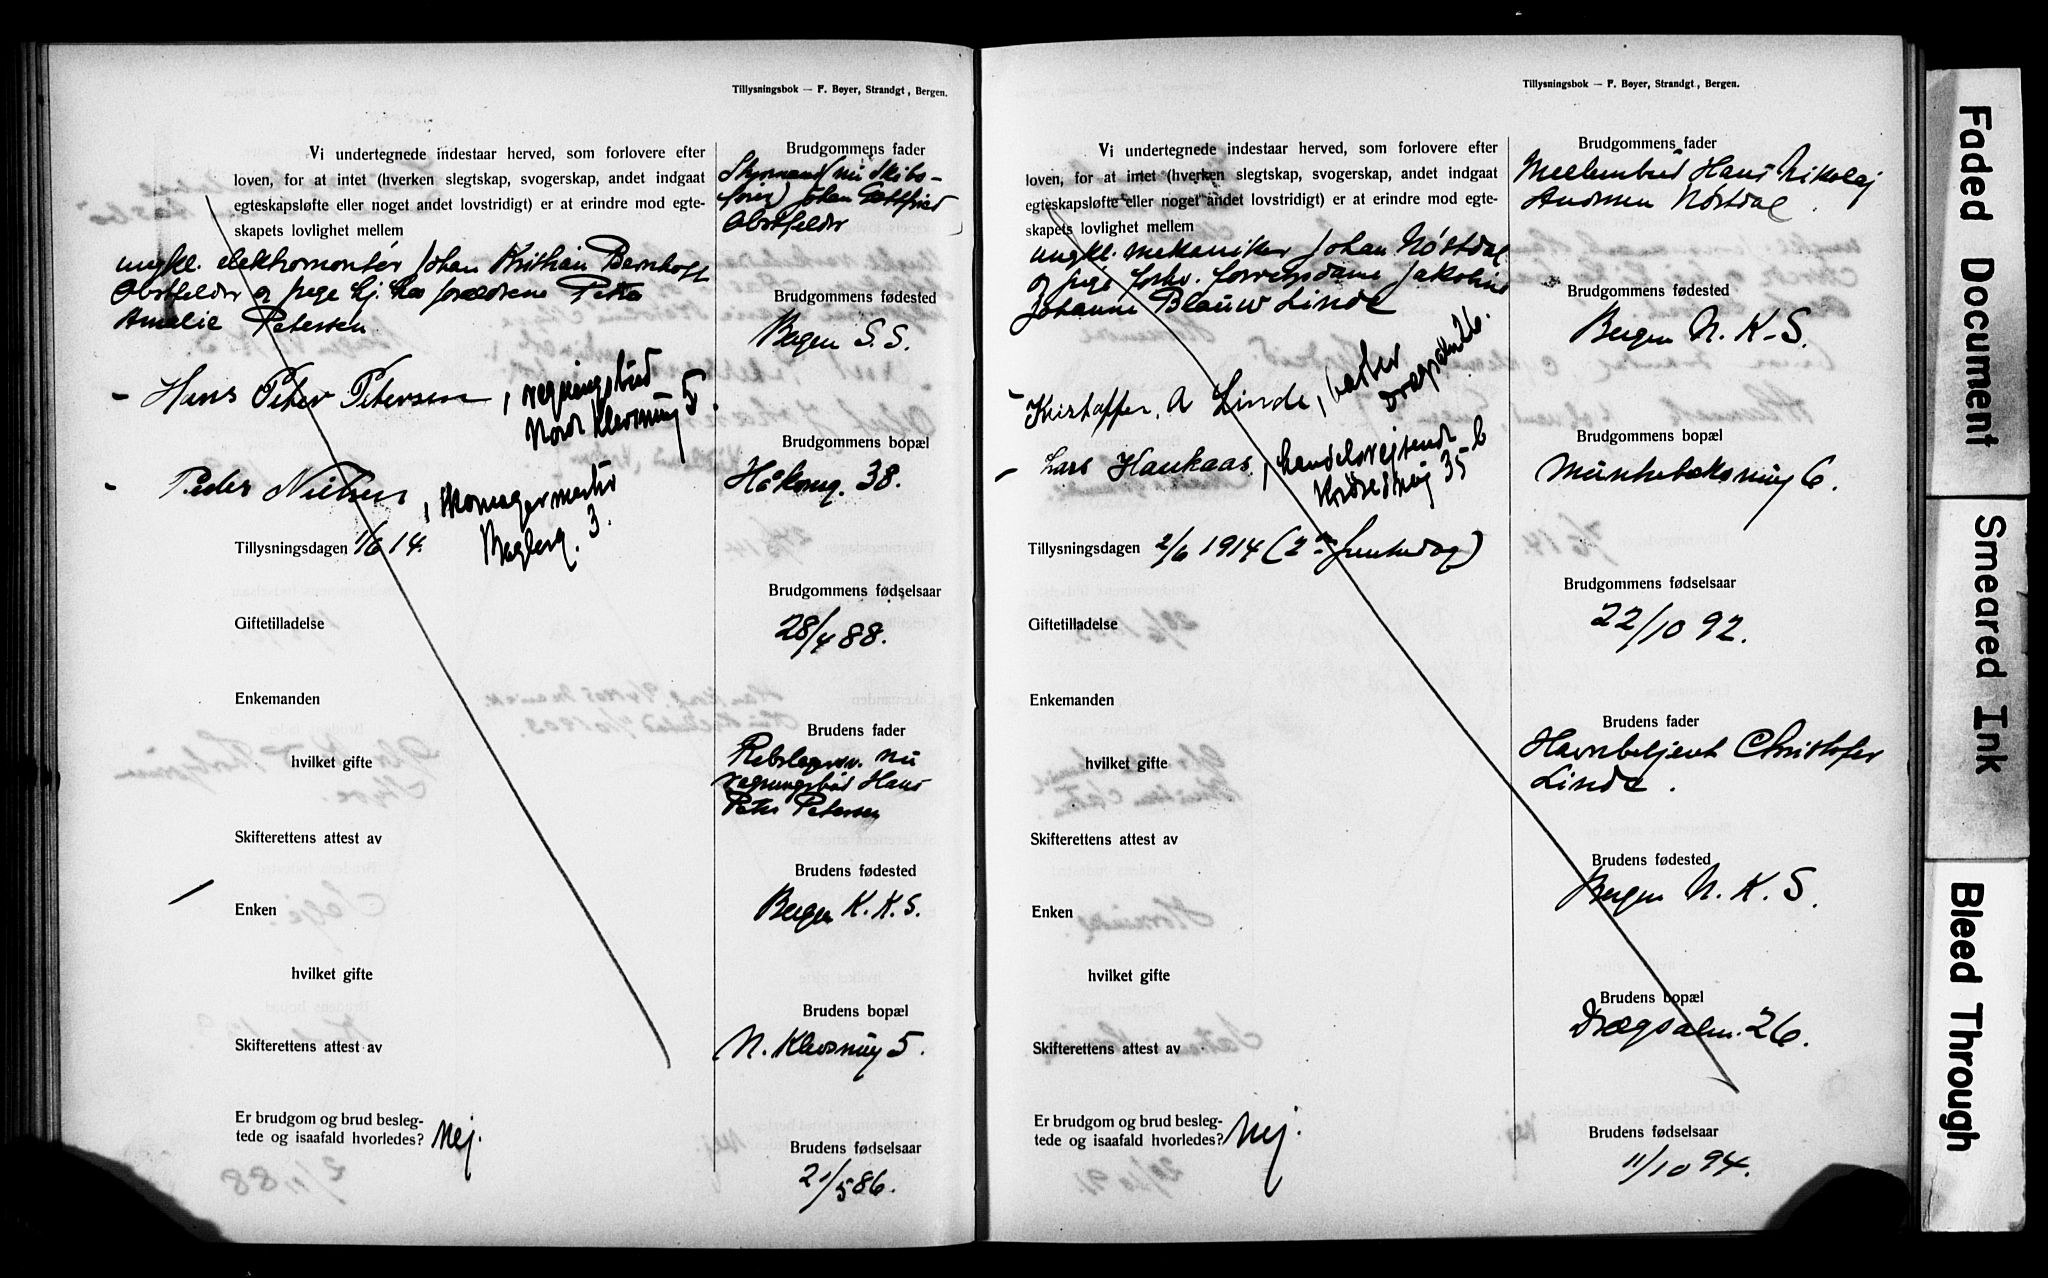 Tillysningsbok — F. Beyer, Strandgt., Bergen.
Vi undertegnede indestaar herved, som forlovere efter
loven, for at intet (hverken slegtskap, svogerskap, andet indgaat
egteskapsløfte eller noget andet lovstridigt) er at erindre mod egte-
skapets lovlighet mellem
ungkl. elektromontør Johan Kristian Bernhoft
Obstfelder og pige hj. hos forældrene Petra
Amalie Petersen
Hans Peter Petersen, regningsbud
Nordr Klevsmug 5
Peder Nielsen, skomagermester
Bagerg. 3.
Tillysningsdagen 1/6 14.
Giftetilladelse
Enkemanden
hvilket gifte
Skifterettens attest av
Enken
hvilket gifte
Skifterettens attest av
Er brudgom og brud besleg-
tede og isaafald hvorledes? Nej.
Brudgommens fader
Styrmand (nu Skibs-
fører) Johan Gottfried
Obstfelder
Brudgommens fødested
Bergen S. S.
Brudgommens bopæl
Håkong. 38.
Brudgommens fødselsaar
28/4 88.
Brudens fader
Rebslagersv. nu
regningsbud Hans
Peter Petersen
Brudens fødested
Bergen K. K. S.
Brudens bopæl
N. Klevsmug 5.
Brudens fødselsaar
21/5 86.
Tillysningsbok — F. Beyer, Strandgt., Bergen.
Vi undertegnede indestaar herved, som forlovere efter
loven, for at intet (hverken slegtskap, svogerskap, andet indgaat
egteskapsløfte eller noget andet lovstridigt) er at erindre mod egte-
skapets lovlighet mellem
ungkl. mekaniker Johan Nøstdal
og pige forhv. forretn.dame Jakobine
Johanne Blauw Linde
Kristoffer. A Linde,
Drægsalm 26.
Lars Haukaas, handelsreisende
35 b
Tillysningsdagen 2/6 1914 (2den pintsedag)
Giftetilladelse
Enkemanden
hvilket gifte
Skifterettens attest av
Enken
hvilket gifte
Skifterettens attest av
Er brudgom og brud besleg-
tede og isaafald hvorledes? Nej.
Brudgommens fader
Mellembud Hans Nikolaj
Andersen Nøstdal.
Brudgommens fødested
Bergen N. K. S.
Brudgommens bopæl
Munkebeksmug 6.
Brudgommens fødselsaar
22/10 92.
Brudens fader
Havnebetjent Christofer
Linde.
Brudens fødested
Bergen N. K. S.
Brudens bopæl
Drægsalm. 26.
Brudens fødselsaar
11/10 94.
Faded Document
Smeared Ink
Bleed Through